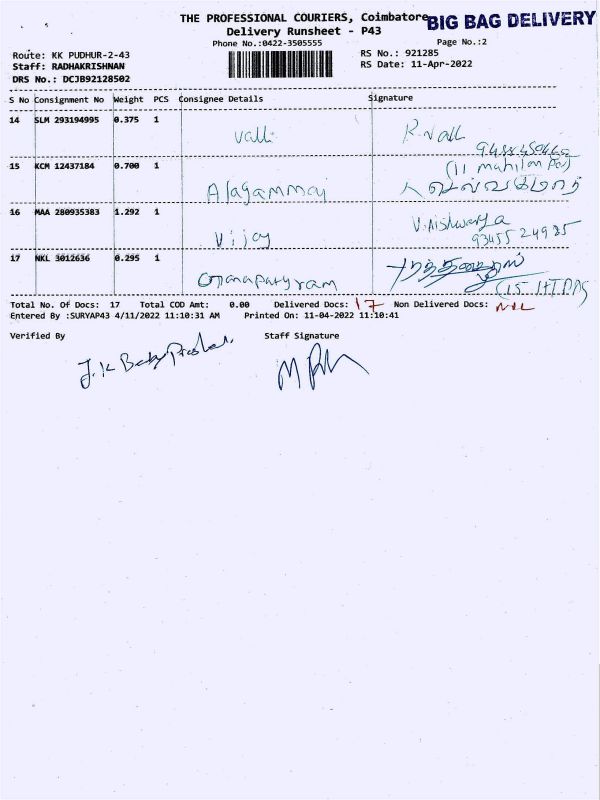 THE PROFESSIONAL COURIERS, Coimbatore
BIG BAG DELIVERY
Delivery Runsheet - P43
Phone No.:0422-3505555
Page No.:2
Route: KK PUDHUR-2-43
RS No.: 921285
Staff: RADHAKRISHNAN
RS Date: 11-Apr-2022
DRS No.: DCJB92128502
S No Consignment No Weight PCS Consignee Details Signature
14 SLM 293194995 0.375 1 Valli R.Valli
15 KCM 12437184 0.700 1 Alagammai
16 MAA 280935383 1.292 1 Vijay V.Aishwarya
9345524985
17 NKL 3012636 0.295 1
Total No. Of Docs: 17 Total COD Amt: 0.00 Delivered Docs: 17 Non Delivered Docs: NIL
Entered By :SURYAP43 4/11/2022 11:10:31 AM Printed On: 11-04-2022 11:10:41
Verified By Staff Signature